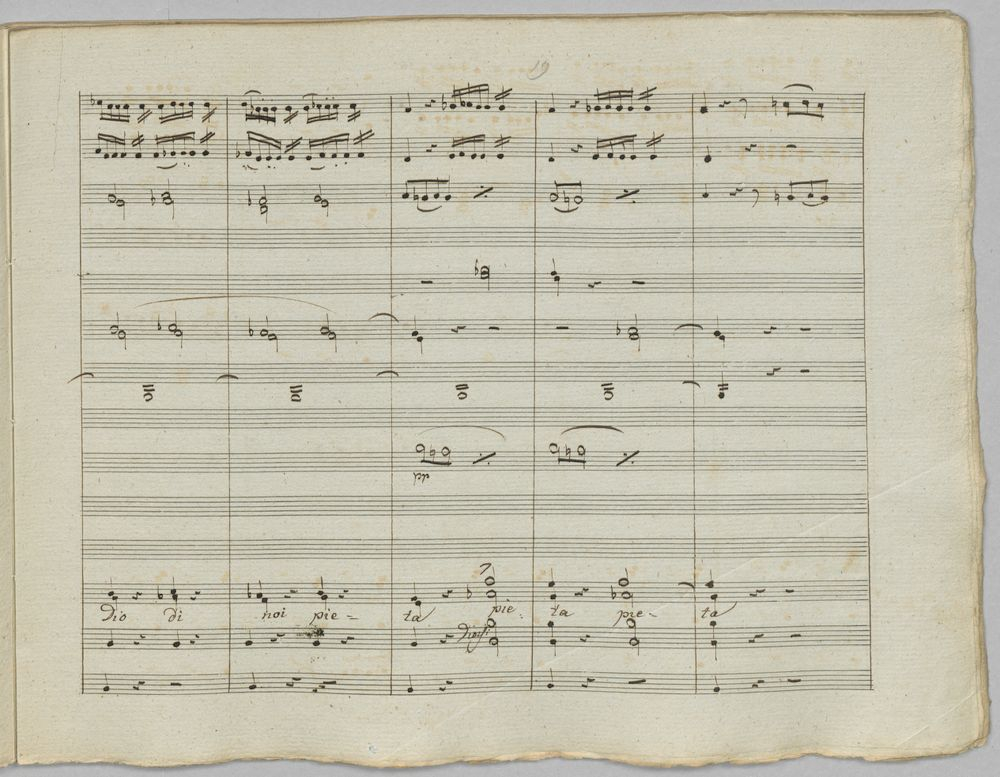 19
pp
Dio di noi pie = ta pie ta pie - ta
Divisi